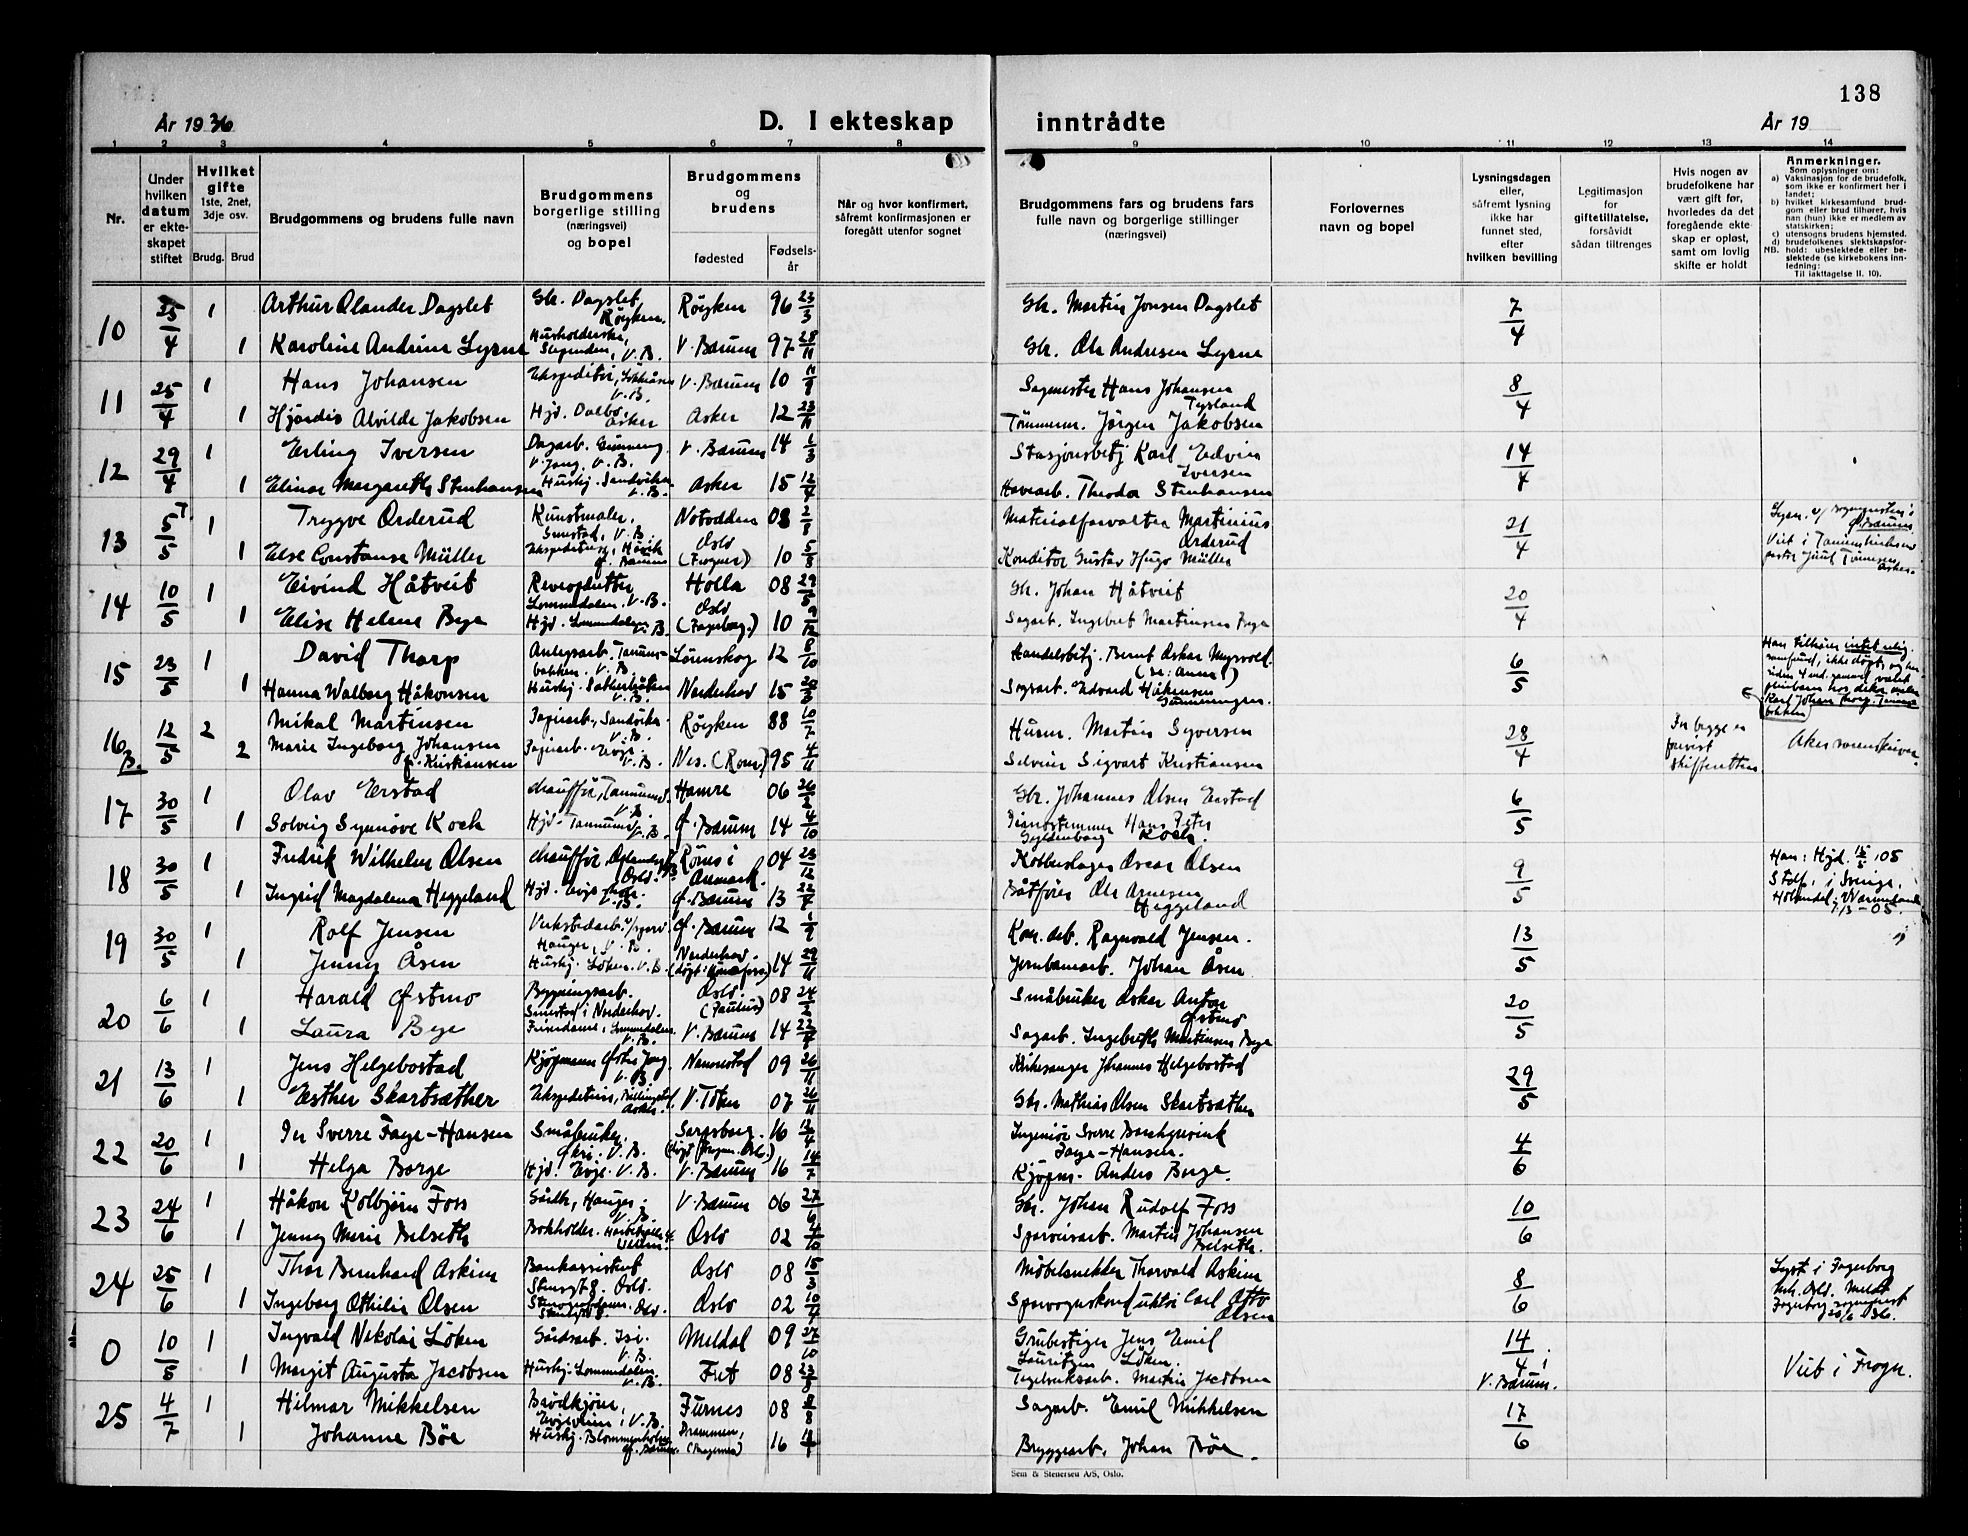 138
År 1936
D. I ekteskap inntrådte
År 19
1 2 3 4 5 6 7 8 9 10 11 12 13 14
Nr.
Under hvilken datum er ekteskapet stiftet
Hvilket gifte 1ste, 2net, 3dje osv.
Brudg. Brud
Brudgommens og brudens fulle navn
Brudgommens borgerlige stilling (næringsvei) og bopel
Brudgommens og brudens
fødested
Fødselsår
Når og hvor konfirmert, såfremt konfirmasjonen er foregått utenfor sognet
Brudgommens fars og brudens fars fulle navn og borgerlige stillinger (næringsvei)
Forlovernes navn og bopel
Lysningsdagen eller, såfremt lysning ikke har funnet sted, efter hvilken bevilling
Legitimasjon for giftetillatelse, forsåvidt sådan tiltrenges
Hvis nogen av brudefolkene har vært gift før, hvorledes da det foregående ekteskap er opløst, samt om lovlig skifte er holdt
Anmerkninger.
Som oplysninger om:
a) Vaksinasjon for de brudefolk, som ikke er konfirmert her i landet;
b) hvilket kirkesamfund brudgom eller brud tilhører, hvis han (hun) ikke er medlem av statskirken;
c) utensogns brudens hjemsted.
d) brudefolkenes slektskapsforhold: ubeslektede eller beslektede (se kirkebokens innledning:
NB. Til iakttagelse II. 10).
10 25/4 1 Arthur Olander Dagslet Gbr. Dagslet, Røyken. Røyken 96 23/5 Gbr. Martin Jonsen Dagslet 7/4
1 Karoline Andrine Lysne Husholderske, Slependen, V.B. V. Bærum 97 28/11 Gbr. Ole Andresen Lysne
11 25/4 1 Hans Johansen V.B. V. Bærum 10 Sagmester Hans Johansen Tysland 8/4
1 Hjørdis Alvilde Jakobsen Hjd. Dalbo, Asker Asker 12 23/11 Tømmerm. Jørgen Jakobsen
12 29/4 1 Erling Iversen Dagarb. V. Jong, V.B. V. Bærum 14 1/3 Stasjonsbetj Karl Edvin Iversen 14/4
1 Elinor Margarethe Stenhansen Hushj. Sandvika V.B. Asker 15 12/4 Havearb. Theodor Stenhansen
13 5/5 1 Trygve Orderud Kunstmaler, V.B. Notodden 08 2/8 Materialforvalter Martinius Orderud 21/4
1 Else Constanse Müller Høvik Ø. Bærum Oslo (Frogner) 10 5/8 Konditor Gustav Hugo Müller
14 10/5 1 Eivind Håtveit Lommedalen. V.B. Holla 08 29/5 Gbr. Johan Håtveit 20/4
1 Elise Helene Bye Hjd. Lommedalen V.B. Oslo (Fagerborg.) 10 9/12 Sagarb. Ingebret Martinsen Bye
15 23/5 1 David Thorp Anlegsarb. Tanumbakken. V.B. Lørenskog 12 8/10 Handelsbetj. Bernt Oskar Myrvold. 6/5 Han tilhører intet relig. samfund, ikke døpt,
1 Hanna Walborg Håkonsen Hushj. V.B. Norderhov 15 Edvard Håkonsen Karl Johan Thorp. Tanumbakken
16 B. 12/5 2 Mikal Martinsen Papirarb., Sandvika. V.B. Røyken 88 10/7 Husm. Martin Syversen 28/4 For begge er forevist skifteretten
2 Marie Ingeborg Johansen f. Kristiansen Papirarb. Evje. V.B. Nes. (Rom.) 95 4/11 Selveier Sigvart Kristiansen Aker sorenskriver.
17 30/5 1 Olav Eerstad Chauffør, Tanum V.B. Hamre 06 26/2 Gbr. Johannes Olsen Eerstad 6/5
1 Solveig Synnøve Koch Hjd. Tanum V.B. Ø. Bærum 14 4/10 Pianostemmer Hans Peter Gyldenborg Koch.
18 30/5 1 Fredrik Wilhelm Olsen Chauffør, Oslo. 04 23/12 Kobberslager Oscar Olsen 9/5
1 Ingrid Magdalena Heggeland Hjd. Evje V.B. Ø. Bærum 13 22/7 Båtfører Ole Arnesen Heggeland
19 30/5 1 Rolf Jensen Hauger, V.B. Ø. Bærum 12 1/6 Kom. arb. Ragnvald Jensen. 13/5
1 Jenny Åsen Hushj. Løken. V.B. Norderhov 14 29/11 Jernbanearb. Johan Åsen
20 6/6 1 Harald Østmo Bygningsarb. i Norderhov. Oslo (Paulus) 08 24/2 Småbruker Oskar Anton Østmo 20/5
1 Laura Bye Lommedalen V.B. V. Bærum 14 Sagarb. Ingebreth Martinsen Bye
21 13/6 1 Jens Helgebostad Kjøpmann Østre Jong V.B. Nannestad 09 26/11 Kirkesanger Johannes Helgebostad 29/5
1 Esther Skartsæther Billingstad, Asker. V. Toten 07 26/11 Gbr. Mathias Olsen Skartsæther
22 20/6 1 Per Sverre Faye-Hansen Småbruker, V.B. Sarpsborg. 16 Ingeniør Sverre Borchgrevink Faye-Hansen. 4/6
1 Helga Borge Hjd. Evje. V.B. V. Bærum 16 14/7 Kjøpm. Anders Borge.
23 24/6 1 Håkon Kolbjørn Foss Hauger V.B. V. Bærum 06 27/6 Gbr. Johan Rudolf Foss 10/6
1 Jenny Marie Belseth Bokholder. Oslo 02 4/10 Sporveisarb. Martin Johansen Belseth.
24 25/6 1 Thor Bernhard Askim Bankassistent Stensgt 8. Oslo. Oslo 08 15/3 Møbelsnekker Thorvald Askim 8/6 Lyst i Fagerborg
1 Ingeborg Othilie Olsen Oslo. Oslo 02 10/4 Sporvognskonduktør Carl Otto Olsen
0 10/5 1 Ingvald Nikolai Løken Gårdsarb. Isi. V.B. Meldal 09 27/10 Grubestiger Jens Emil Lauritzen Løken. 14/4 i V. Bærum. Viet i Frogn.
1 Margit Augusta Jacobsen Hushj. Lommedalen V.B. Fet 08 23/8 Teglverksarb. Martin Jacobsen
25 4/7 1 Hilmar Mikkelsen Brødkjører, V.B. Furnes 08 8/8 Sagarb. Emil Mikkelsen 17/6
1 Johanne Bøe Hushj. Blommenholm Ø. Bærum. Drammen, (Bragernes) 16 Bryggearb. Johan Bøe.
Sem & Stenersen A/S, Oslo.